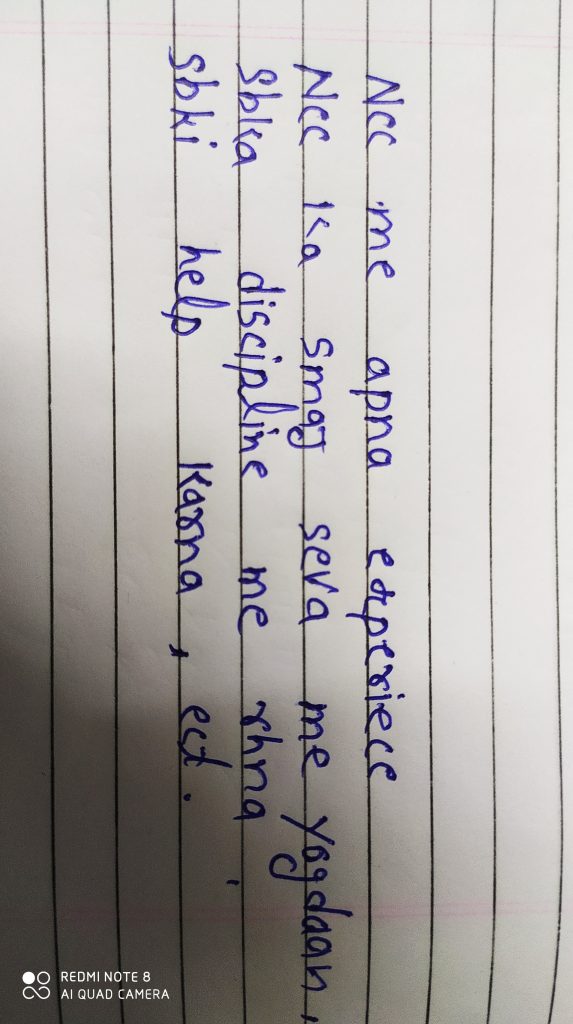 Ncc me apna experiece
Ncc ka smaj seva me yogdaan,
sbka discipline me rhna,
sbki help karna, ect.
REDMI NOTE 8
AI QUAD CAMERA